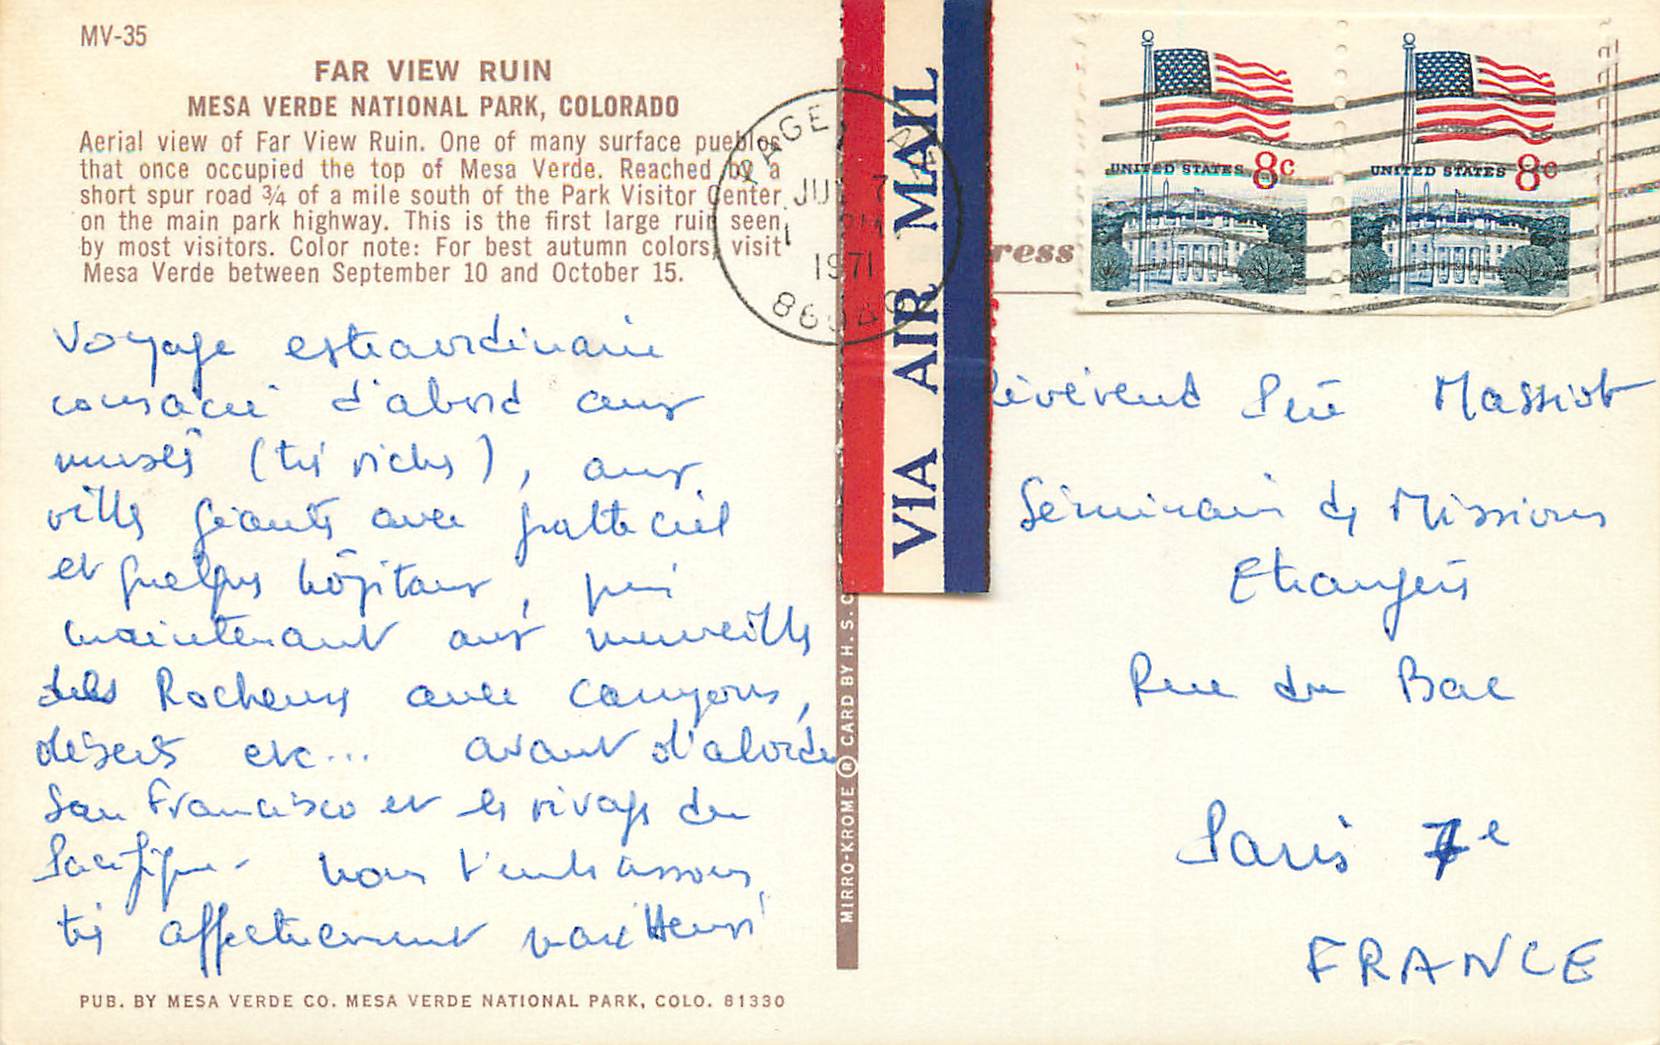 MV-35
FAR VIEW RUIN
MESA VERDE NATIONAL PARK, COLORADO
Aerial view of Far View Ruin. One of many surface pueblos
that once occupied the top of Mesa Verde. Reached by a
short spur road ¾ of a mile south of the Park Visitor Center
on the main park highway. This is the first large ruin seen
by most visitors. Color note: For best autumn colors, visit
Mesa Verde between September 10 and October 15.
Voyage extraordinaire
consacré d'abord aux
musées (très riches), aux
villes géantes avec gratte ciel
et quelques hôpitaux, puis
maintenant aux merveilles
des Rocheuses avec canyons,
déserts etc... avant d'aborder
San Francisco et les rivages du
Pacifique - Nous t'embrassons
très affectueusement Henri
PUB. BY MESA VERDE CO. MESA VERDE NATIONAL PARK, COLO. 81330
MIRRO-KROME ® CARD BY H. S. C
VIA AIR MAIL
PAGE, A
JUL 7
PM
1971
86040
ress
UNITED STATES 8c
UNITED STATES 8c
Révérend Père Massiot
Séminaire des Missions
Etrangères
Rue du Bac
Paris 7e
FRANCE